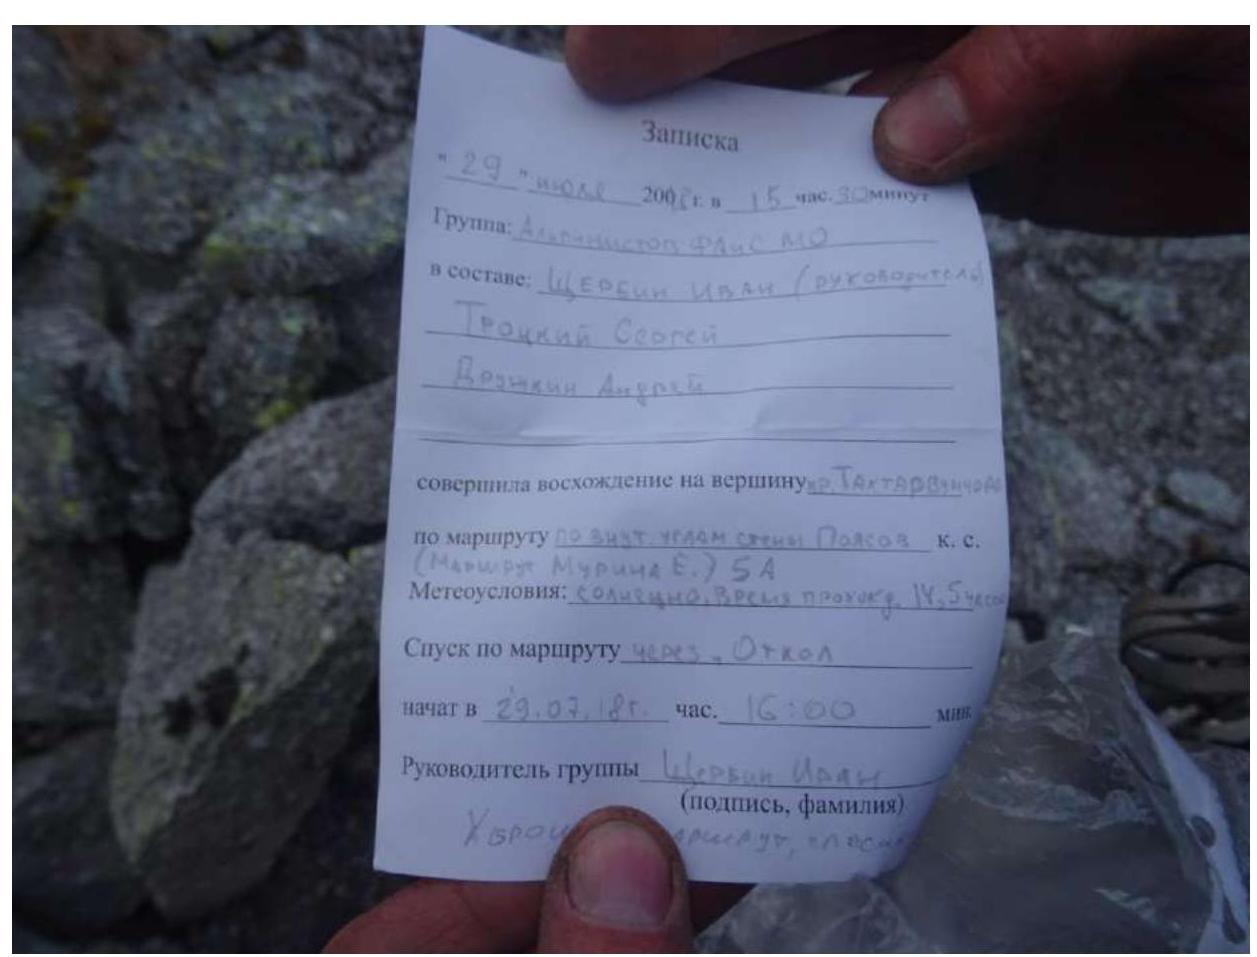 Записка
"29" июля 2018г. в 15 час. 30 минут
Группа: Альпинистов ФАиС МО
в составе: Щербин Иван (руководитель)
Троцкий Сергей
Дружкин Андрей
совершила восхождение на вершину хр. Тахтарвумчорр
по маршруту по внут. углам стены Поясов к. с.
(Маршрут Мурина Е.) 5А
Метеоусловия: солнечно. Время прохожд. 14,5 часов
Спуск по маршруту через "Откол
начат в 29.07.18г. час. 16:00 мин.
Руководитель группы Щербин Иван
(подпись, фамилия)
маршрут,